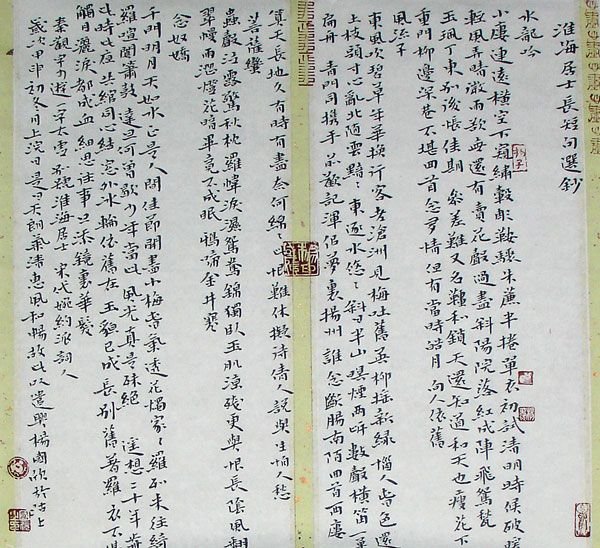 淮海居士長短句選鈔
水龍吟
小樓連遠橫空下窺繡轂彫鞍驟朱簾半捲單衣初試清明時候破暖
輕風弄晴微雨欲無還有賣花聲過盡斜陽院落紅成陣飛鴛甃
玉珮丁東別後悵佳期參差難又名韁利鎖天還知道和天也瘦花下
重門柳邊深巷不堪回首念多情但有當時皓月向人依舊
風流子
東風吹碧草年華換行客老滄洲見梅吐舊英柳搖新綠惱人春色還
上枝頭寸心亂北隨雲黯黯東逐水悠悠斜日半山暝煙兩岸數聲橫笛一
扁舟青門同攜手前歡記渾似夢裏揚州誰念斷腸南陌回首西樓
算天長地久有時有盡奈何綿綿此恨難休擬待倩人說與生怕人愁
菩薩蠻
蟲聲泣露驚秋枕羅幃淚濕鴛鴦錦獨臥玉肌涼殘更與恨長陰風翻
翠幔雨澀燈花暗畢竟不成眠鴉啼金井寒
念奴嬌
千門明月天如水正是人間佳節開盡小梅春氣透花燭家家羅列來往綺
羅喧闐簫鼓達旦何曾歇少年當此風光真是殊絕遙想二十年前
此時此夜共綰同心結窗外冰輪依舊在玉貌已成長別舊著羅衣不堪
觸目灑淚都成血細思往事只添鏡裏華髮
秦觀字少游一字太虛號淮海居士宋代婉約派詞人
歲次甲申初冬月上浣日是日天朗氣清惠風和暢故此以遣興楊國欣於沽上